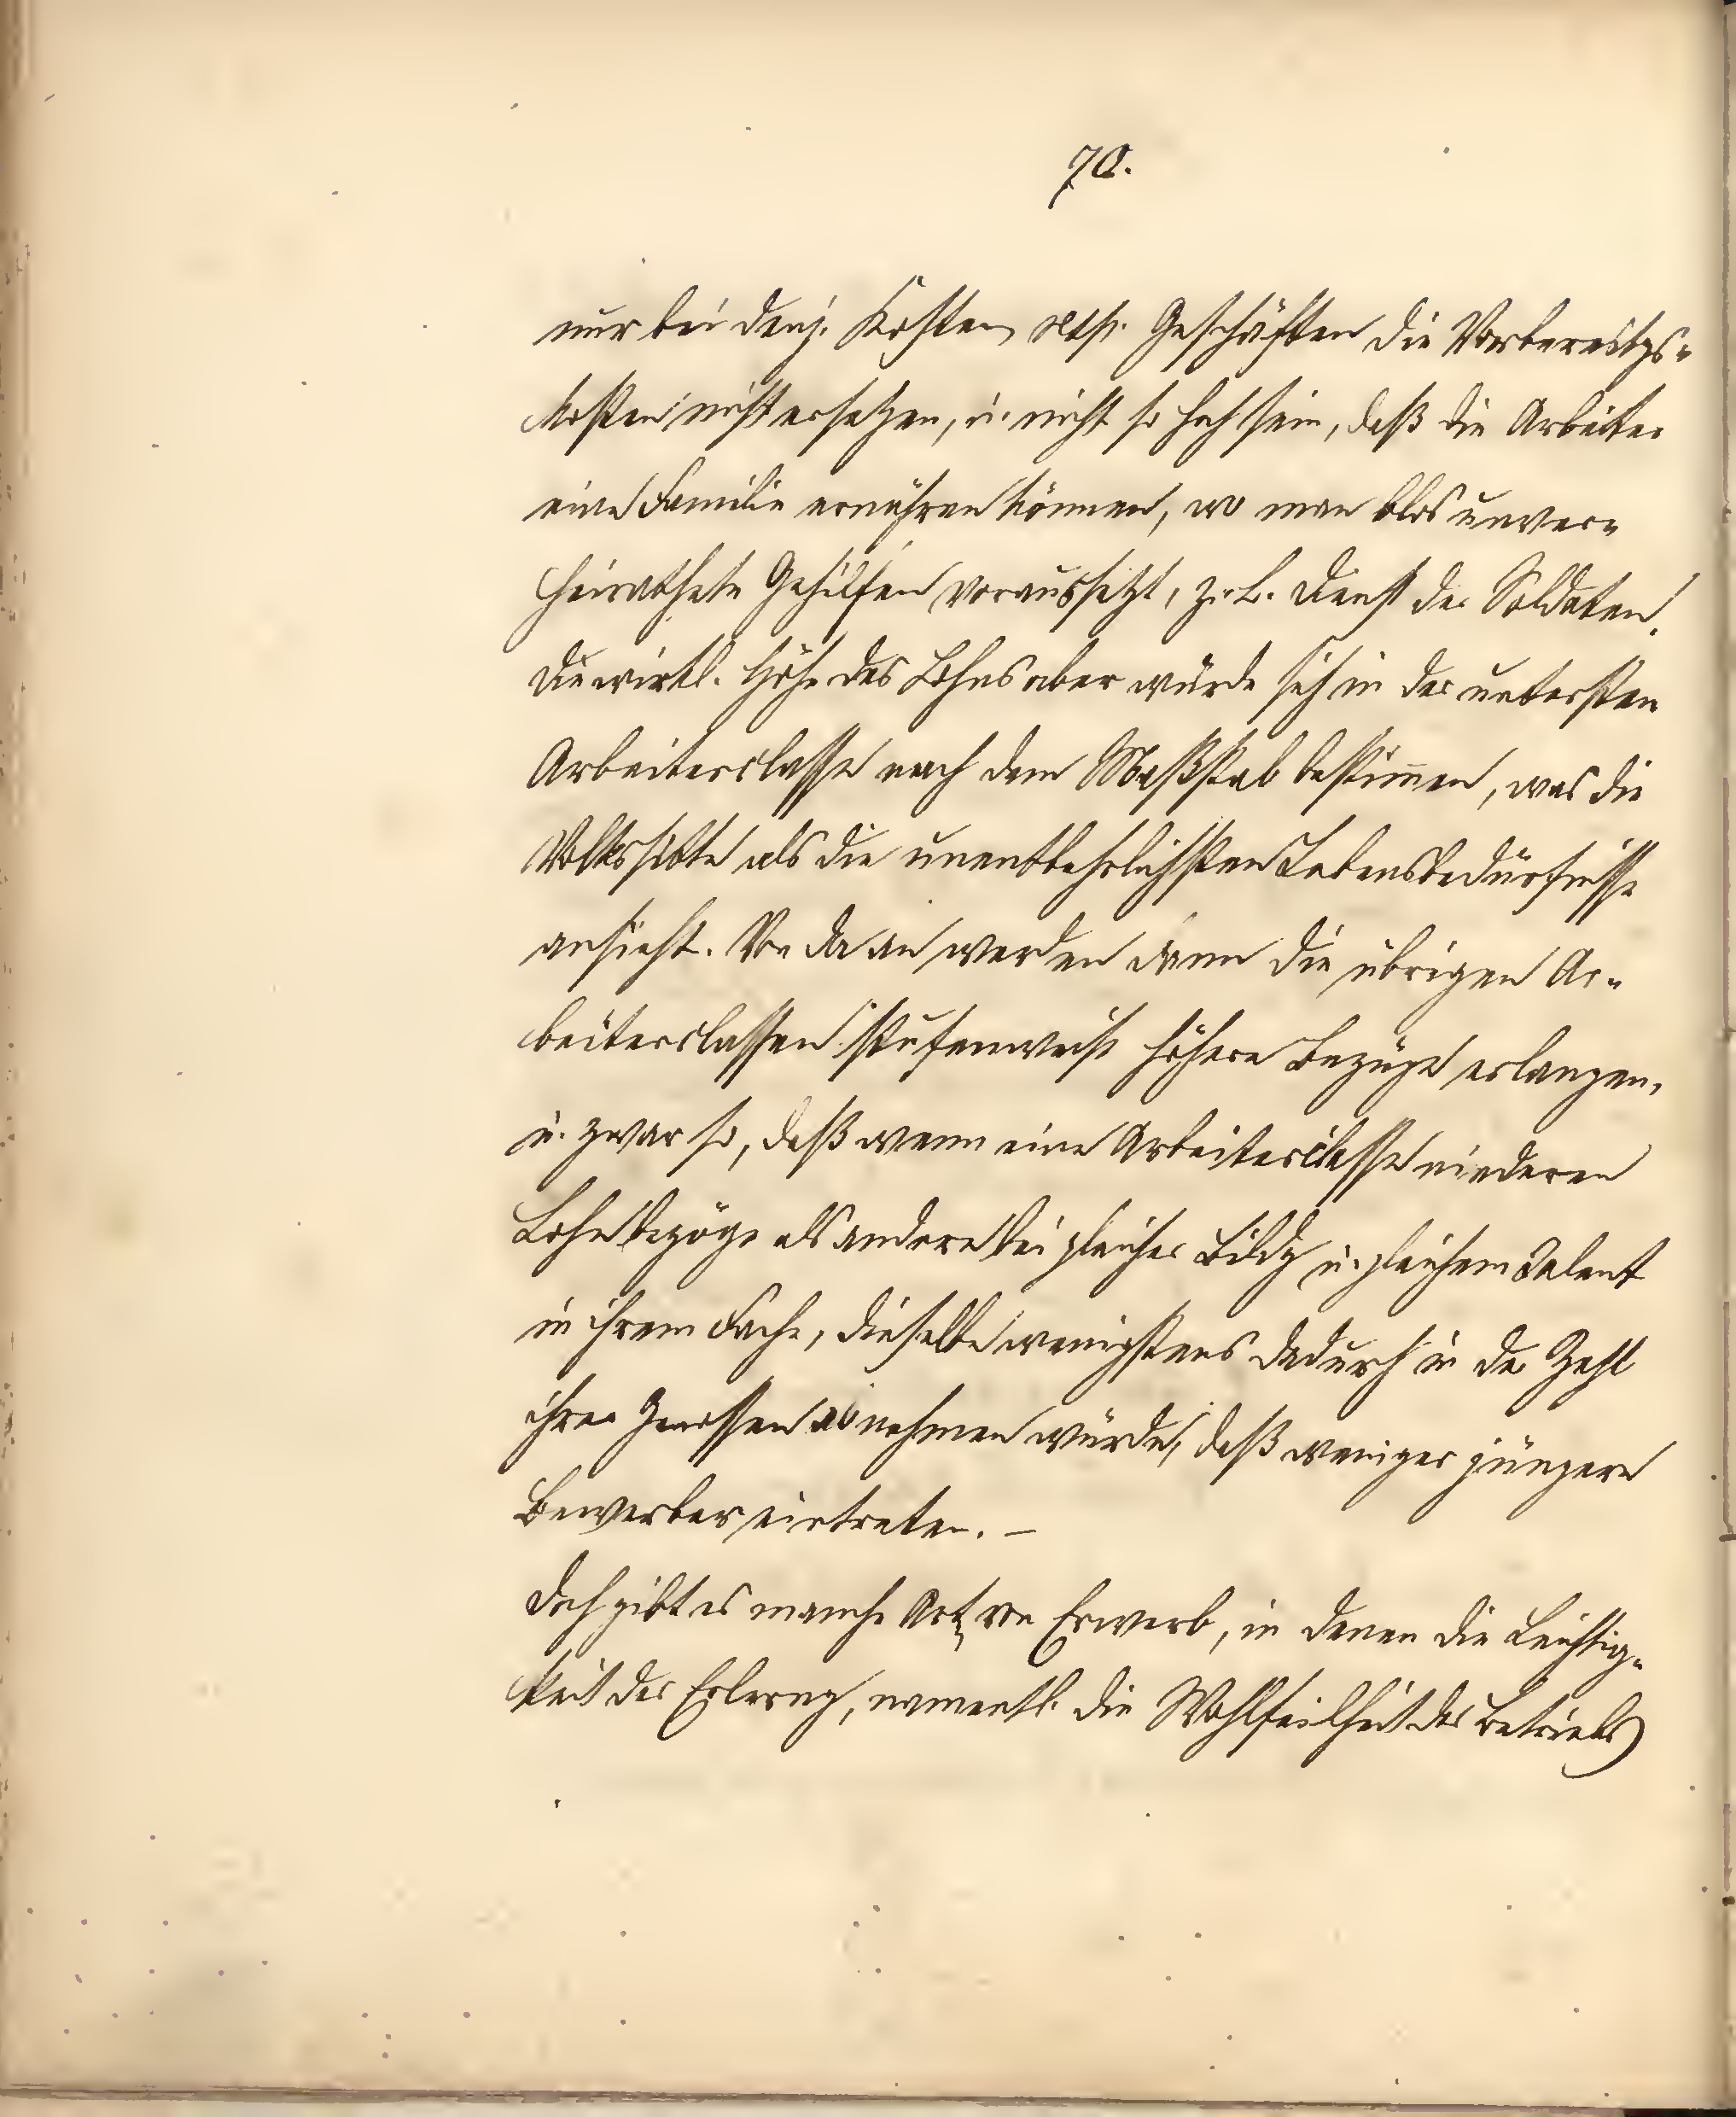 70.
nur bei denj. Kosten resp. Geschäften die Vorbereitgs-
kosten nicht ersetzen, u. nicht so hoch sein, daß die Arbeiter
eine Familie ernähren können, wo man blos unver-
heirathete Gehilfen voraussetzt, z. B. Dienst der Soldaten.
Die wirkl. Höhe des Lohns aber würde sich in der untersten
Arbeiterclasse nach dem Maßstab bestim̅en, was die
Volkssitte als die unentbehrlichsten Lebensbedürfnisse
ansieht. Von da an werden dann die übrigen Ar-
beiterclassen stufenweise höhere Bezüge erlangen,
u. zwar so, daß wenn eine Arbeiterclasse niederen
Lohn bezöge als andere bei gleicher Bildg u. gleichem Talent
in ihrem Fache, dieselbe wenigstens dadurch in der Zahl
ihrer Genossen abnehmen würde, daß weniger jüngere
Bewerber eintreten. —
Doch gibt es manche Art von Erwerb, in denen die Leichtig-
keit der Erlerng, namentl. die Wohlfeilheit des Betriebs